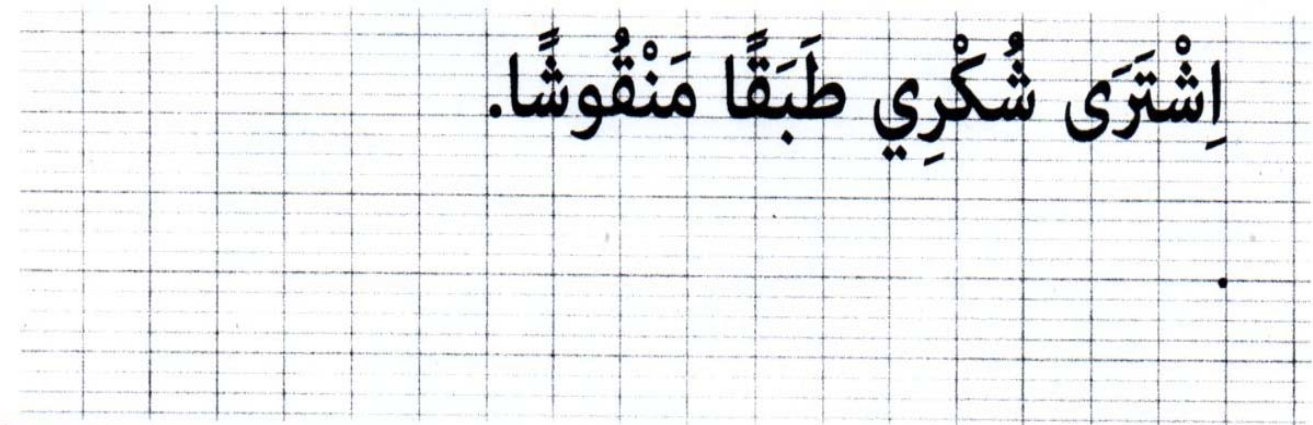 اِشْتَرَى شُكْرِي طَبَقًا مَنْقُوشًا.